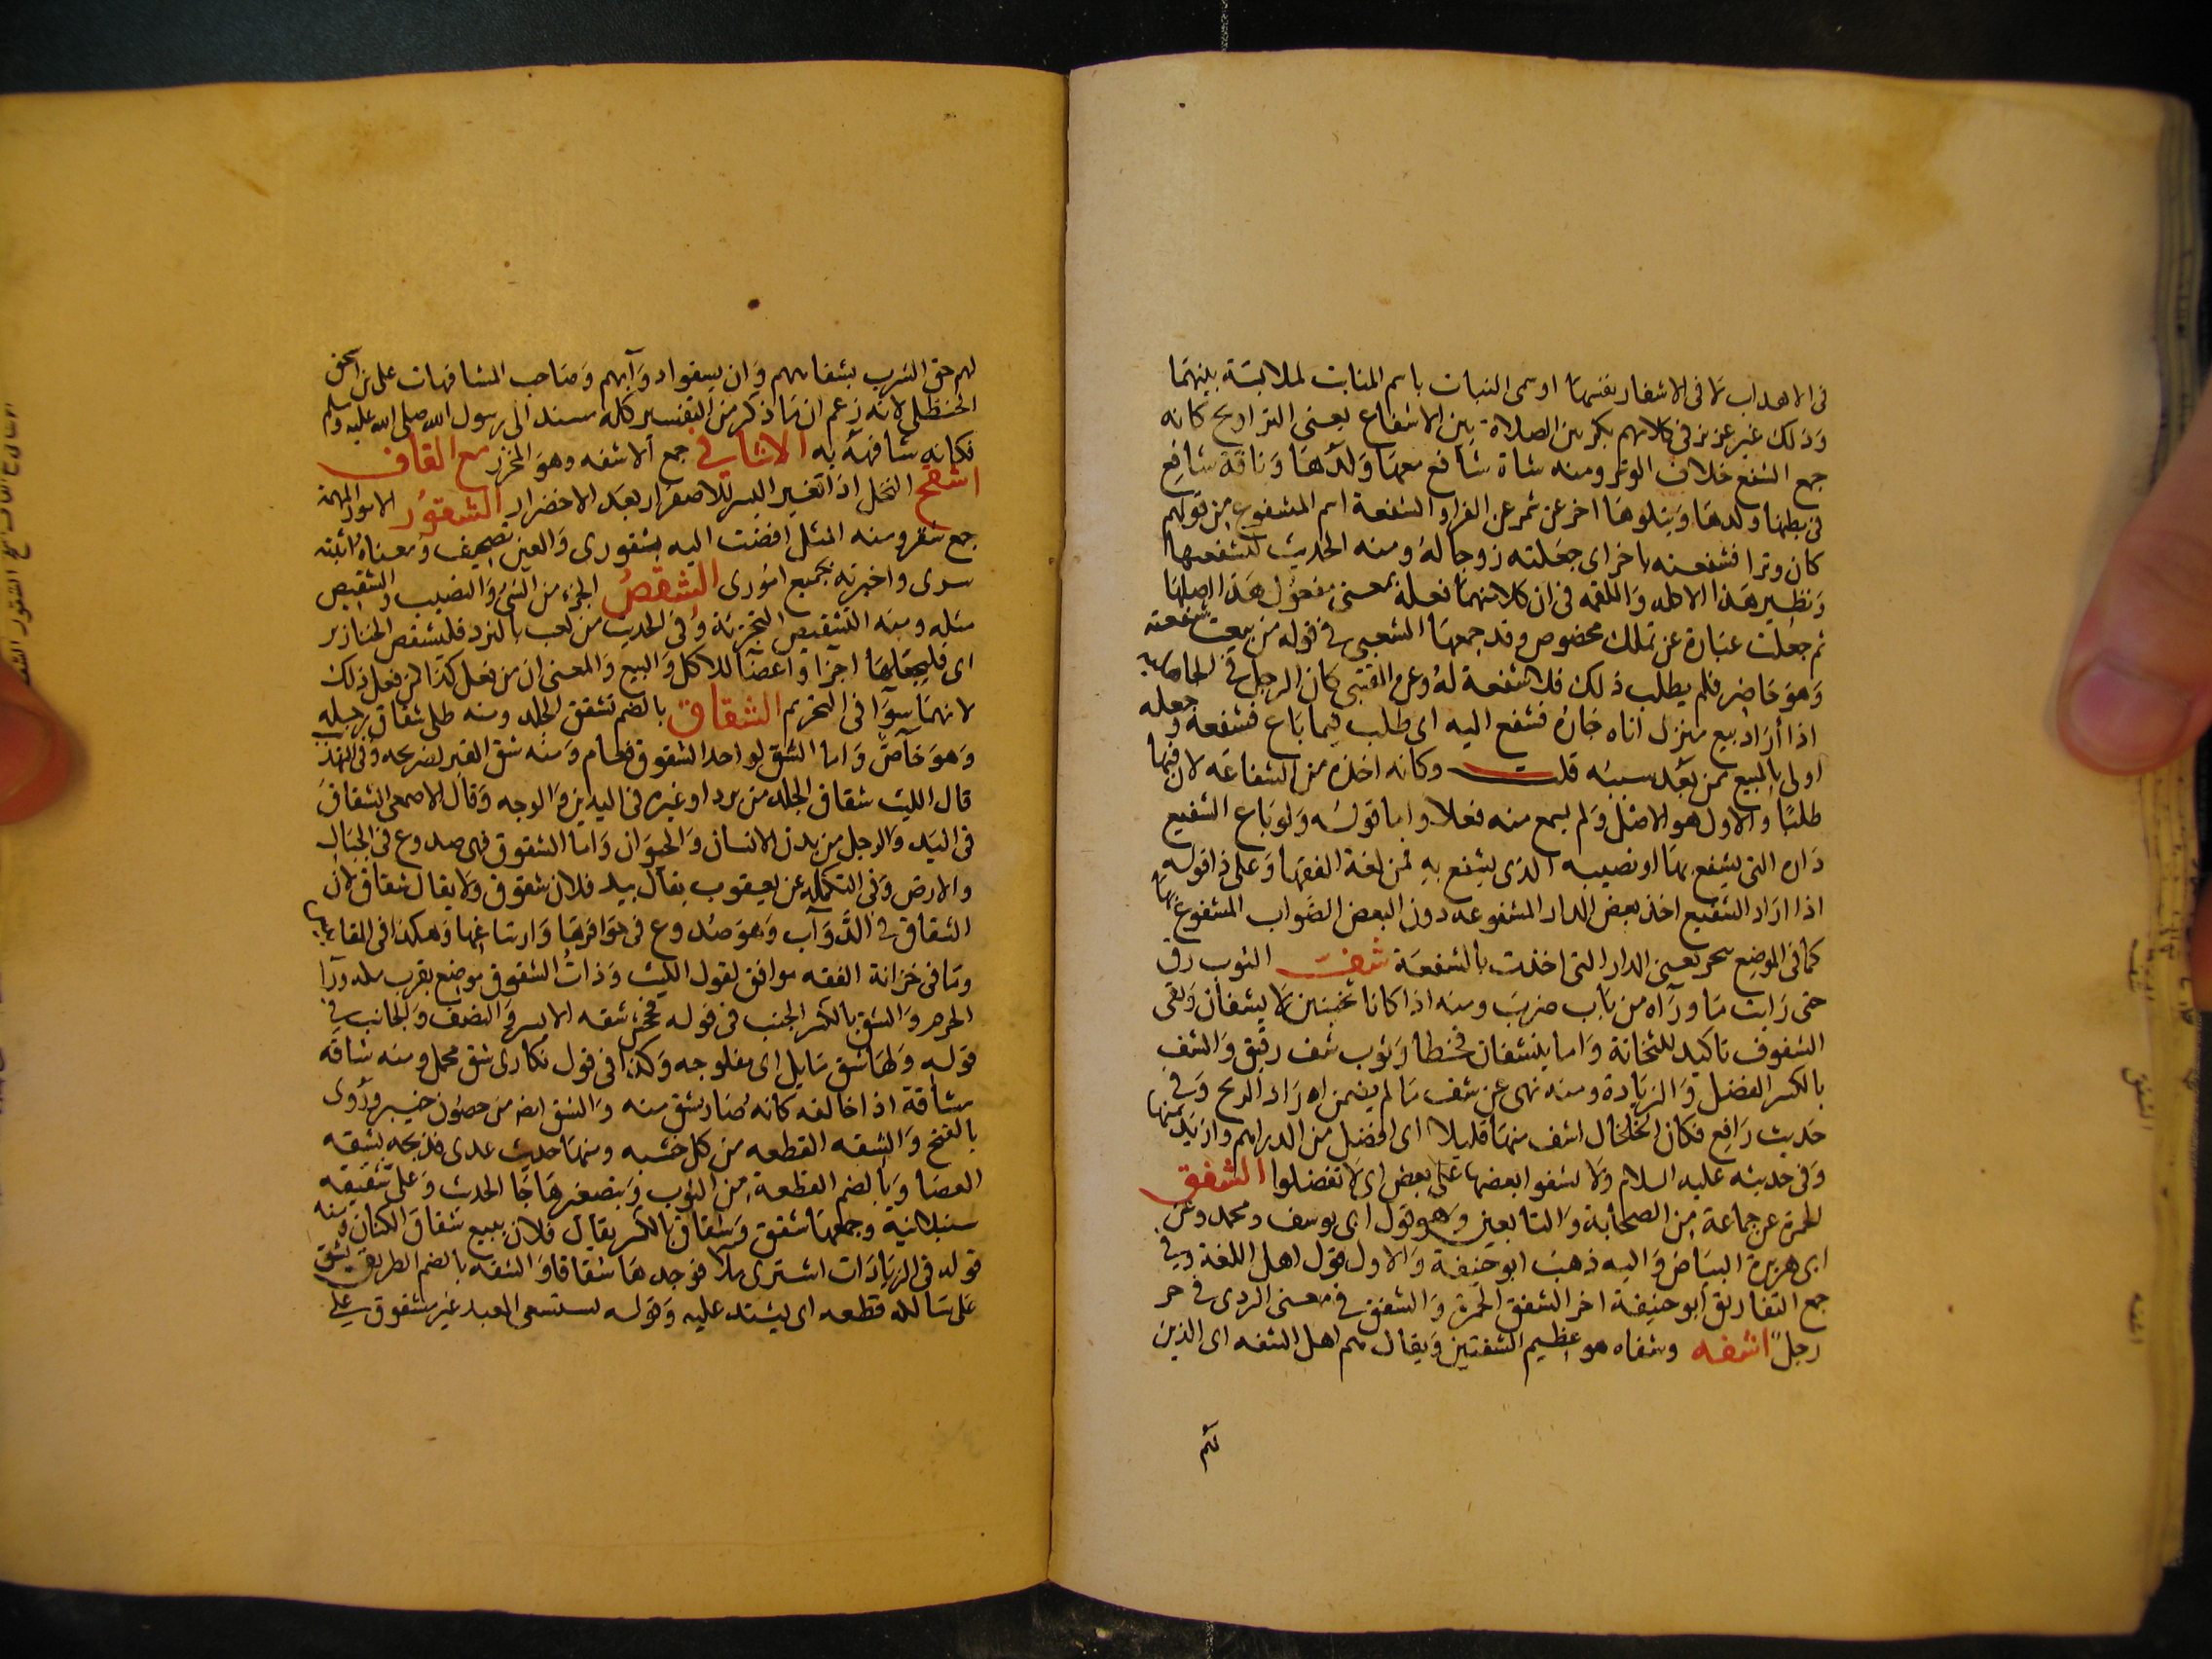 فى الاهداب لا فى الاشفار نفسها او سمى النبات باسم المنابت لملابسة بينهما
وذلك غير عزيز فى كلامهم يكره بين الصلاة بين الاشفاع يعنى التراويح كانه
جمع الشفع خلاف الوتر ومنه شاة شافع معها ولدها وناقة شافع
فى بطنها ولدها ويتلوها اخر عن شمر عن الفراء والشفعة اسم المشفوع من قولهم
كان وترا فشفعته باخر اى جعلته زوجا له ومنه الحديث ليشفعها
ونظير هذا الاكله واللقمه فى ان كلا منهما فعلة بمعنى مفعول هذا اصلها
ثم جعلت عبارة عن تملك مخصوص وقد جمعها الشعبى فى قوله من بيعت شفعته
وهو حاضر فلم يطلب ذلك فلا شفعة له وعن القتبى كان الرجل فى الجاهليه
اذا أراد بيع منزل اتاه جاره فشفع اليه اى طلب فيما باع فشفعه وجعله
اولى بالبيع ممن بعد سببه قلت وكانه اخذه من الشفاعه لان فيها
طلبا والاول هو الاصل ولم يسمع منه فعل واما قوله ولو باع الشفيع
داره التى يشفع بها او نصيبه الذى يشفع به فمن لغة الفقها وعلى ذا قوله
اذا اراد الشفيع اخذ بعض الدار المشفوعه دون البعض الصواب المشفوع بها
كما فى الموضع يعنى الدار التى اخذت بالشفعة شف الثوب رق
حتى رايت ما وراه من باب ضرب ومنه اذا كانا ثخينين لا يشفان ونفى
الشفوف تاكيد للثخانة واما ينشفان فخطا وثوب شف رقيق والشف
بالكسر الفضل والزيادة ومنه نهى عن شف ما لم يضمن اراد الربح وفى
حديث رافع فكان الخلخال اشف منها قليلا اى افضل من الدراهم وازيد منها
وفى حديثه عليه السلام ولا تشفوا بعضها على بعض اى لا تفضلوا الشفق
الحمرة عن جماعة من الصحابة والتابعين وهو قول ابى يوسف ومحمد وعن
ابى هريرة البياض واليه ذهب ابو حنيفة والاول قول اهل اللغة وفى
جمع التفاريق ابو حنيفة اخر الشفق الحمرة والشفق فى معنى الردى فى حر
رجل اشفه وشفاه هو عظيم الشفتين ويقال هم اهل الشفه اى الذين
لهم
لهم حق الشرب بشفاههم وان يسقوا دوابهم وصاحب المشافهات على بن اسحق
الحنظلى لانه زعم ان ما ذكر من التفسير كله مسند الى رسول الله صلى الله عليه وسلم
فكانه شافهه به الاشافى جمع الاشفه وهو المخرز مع القاف
اشقح النخل اذا تغير البسر للاصفرار بعد الاخضرار الشقور الامور المهمة
جمع شقر ومنه المثل افضت اليه بشقورى والعين تصحيف ومعناه ابثثته
سرى واخبرته بجميع امورى الشقص الجزء من الشئ والنصيب والشقيص
مثله ومنه التشقيص التجزئة وفى الحديث من لعب بالنرد فليشقص الخنازير
اى فليجعلها اجزا واعضا للاكل والبيع والمعنى ان من فعل كذا كمن فعل ذلك
لانهما سوا فى التحريم الشقاق بالضم تشقق الجلد ومنه طلى شقاق رجليه
وهو خاص واما الشق لواحد الشقوق فعام ومنه شق القبر لضريحه وفى التهذيب
قال الليث شقاق الجلد من برد او غيره فى اليدين والوجه وقال الاصمعى الشقاق
فى اليد والرجل من بدن الانسان والحيوان واما الشقوق فهى صدوع فى الجبال
والارض وفى التكمله عن يعقوب يقال بيد فلان شقوق ولا يقال شقاق لان
الشقاق فى الدواب وهو صدوع فى حوافرها وارساغها وهكذا فى
وما فى خزانة الفقه موافق لقول الليث وذات الشقوق موضع بقرب ورا
الحرم والشق بالكسر الجنب فى قوله فجحش شقه الايسر والنصف والجانب فى
قوله ولها شق مايل اى مفلوجه وكذا فى قول تكارى شق محمل ومنه شاقه
مشاقة اذا خالفه كانه صار بشق منه والشق ايضا من حصون خيبر وروى
بالفتح والشقه القطعه من كل خشبه ومنها حديث عدى فذبحه بشقه
العصا وبالضم القطعة من الثوب وبتصغيرها جا الحديث وعلى شقيقه
سنبلانيه وجمعها شقق وشقاق بالكسر يقال فلان يبيع شقاق الكتان ومنه
قوله فى الزيادات اشترى ملاة فوجدها شقاقا والشقه بالضم الطريق يشق
على سالكه قطعه اى يشتد عليه وقوله يستسعى العبد غير مشقوق عليه